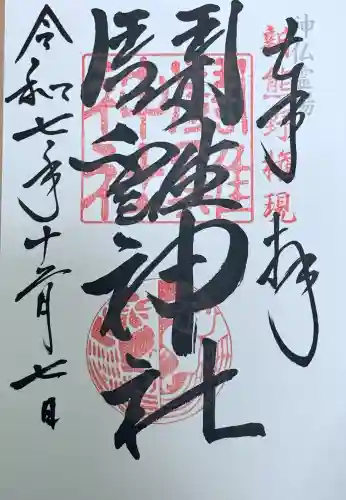 神仏霊場
奉拝
新熊野権現
鬪雞神社
令和七年十一月七日